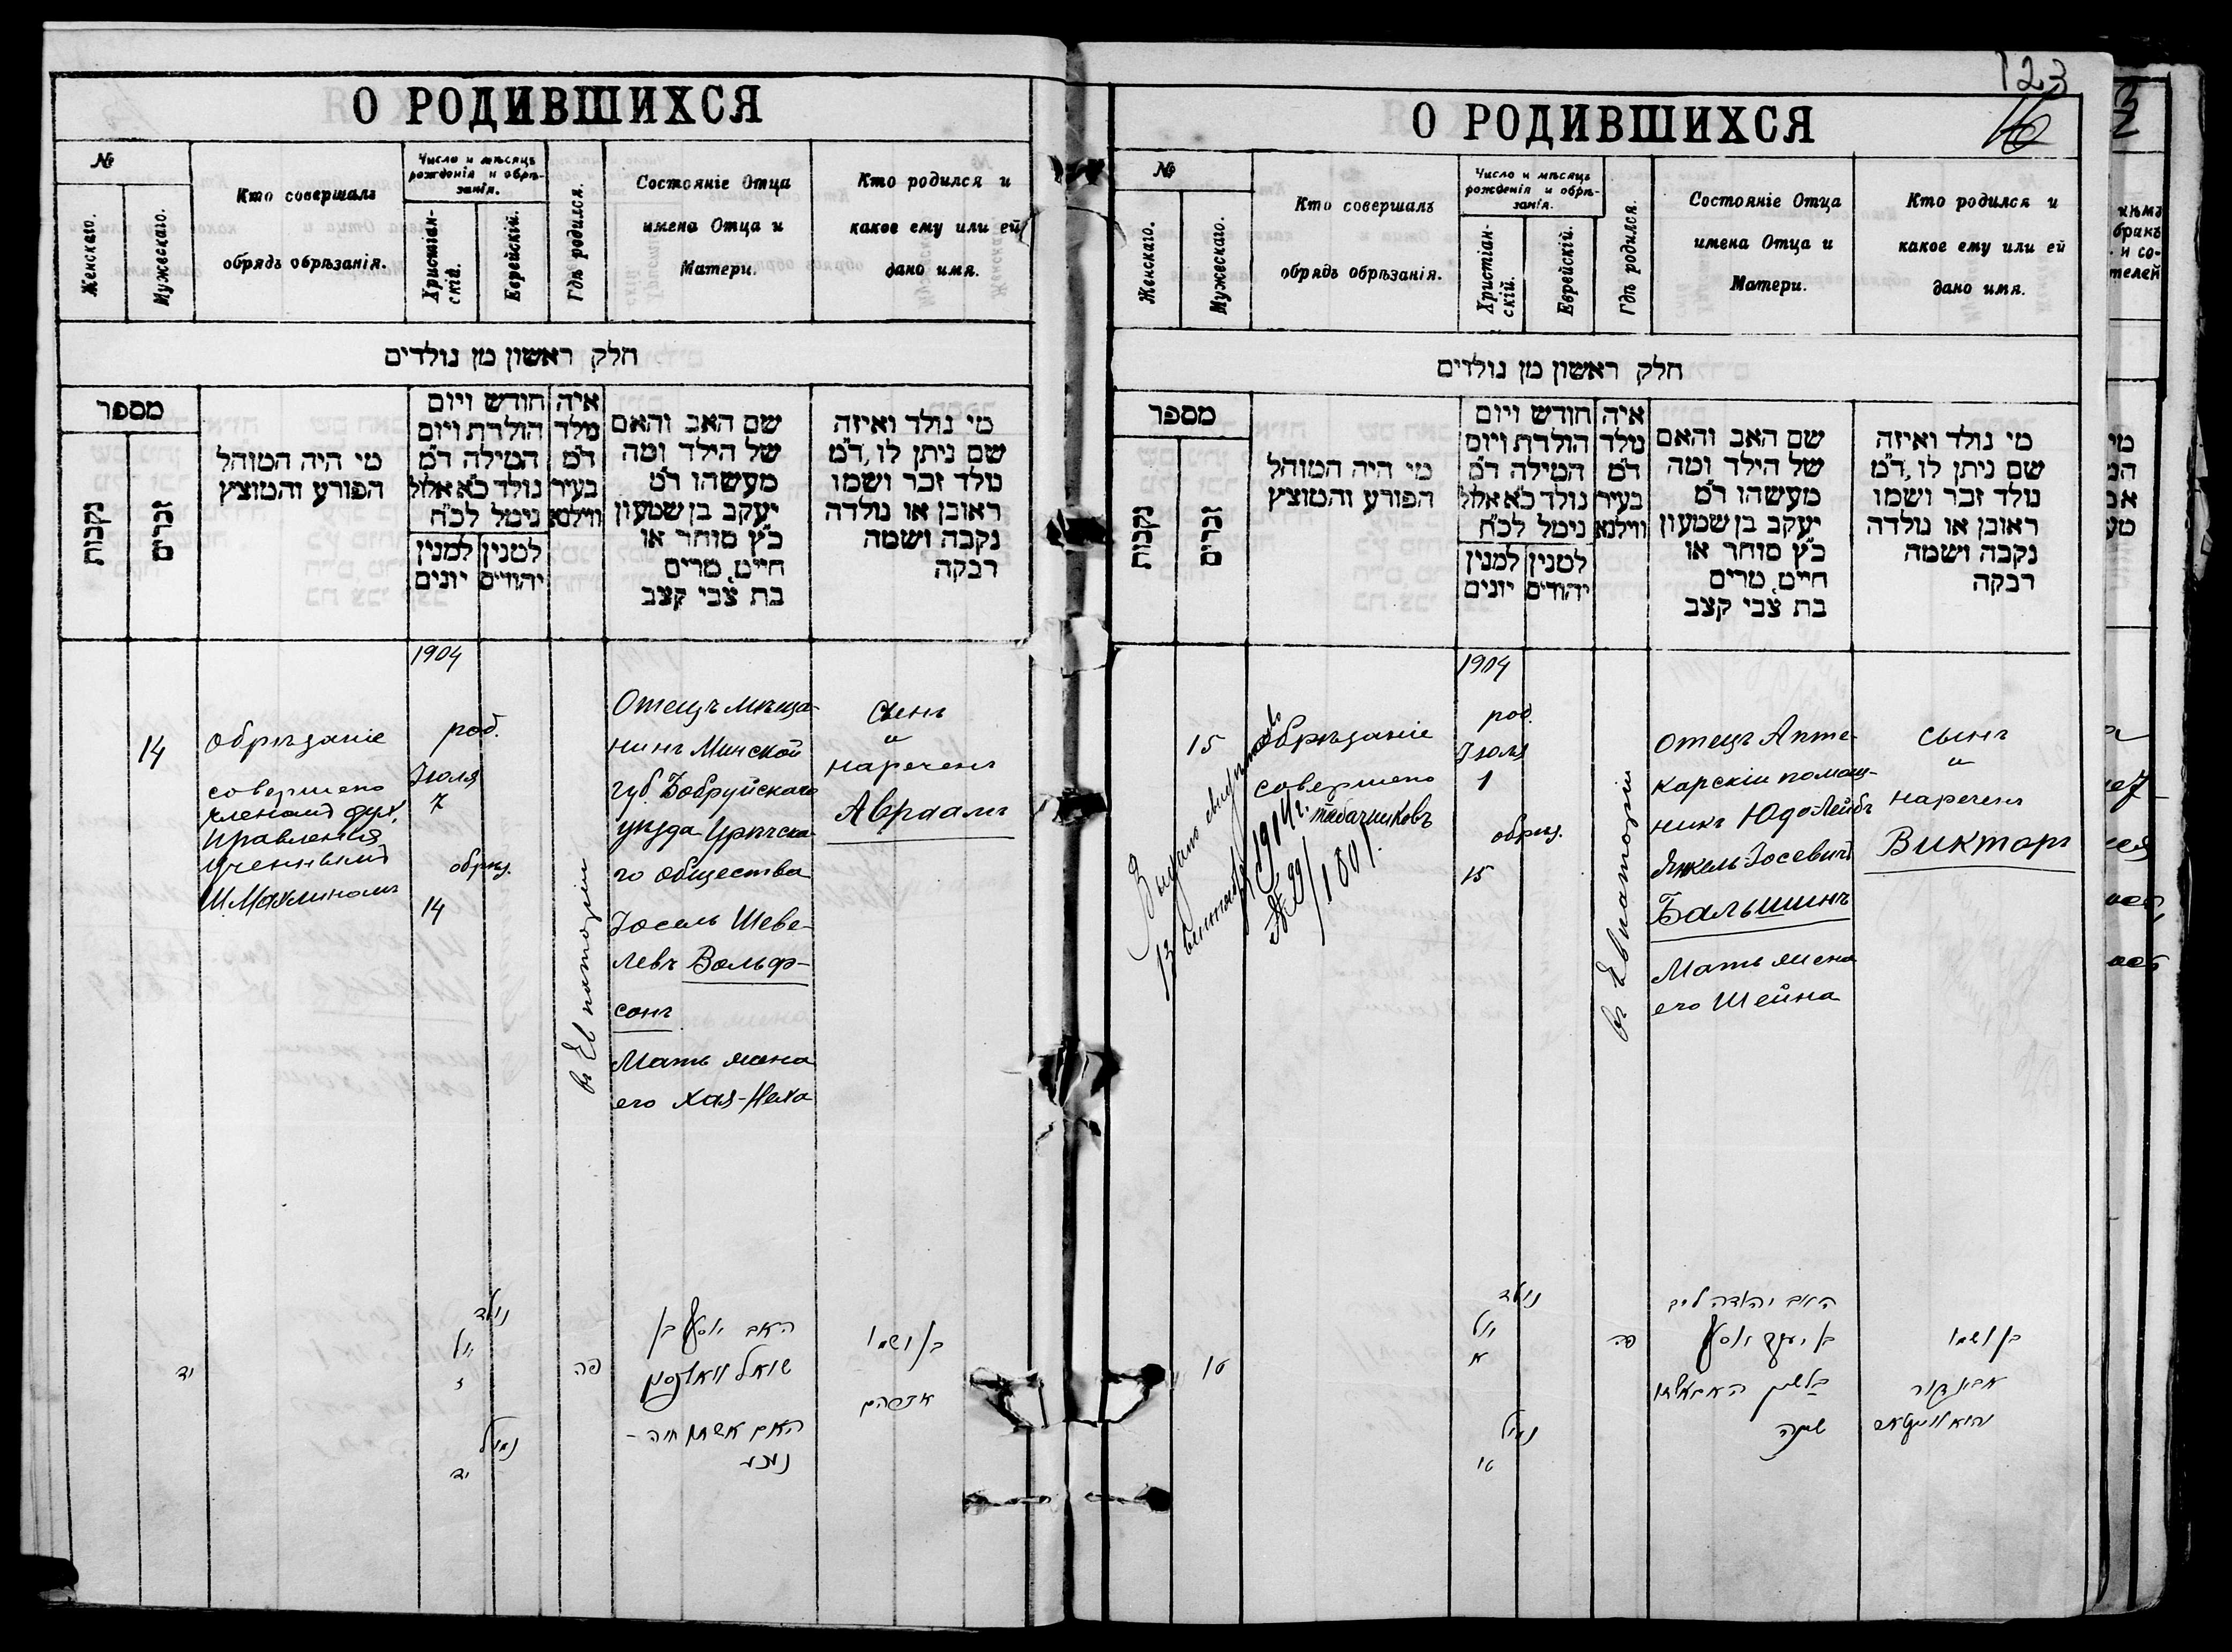 О РОДИВШИХСЯ
№
Женскаго.
Мужескаго.
Кто совершалъ
обрядъ обрѣзанія.
Число и мѣсяцъ
рожденія и обрѣ-
занія.
Христіан-
скій.
Еврейскій.
Гдѣ родился.
Состояніе Отца
имена Отца и
Матери.
Кто родился и
какое ему или ей
дано имя.
חלק ראשון מן נולדים
מספר
נקבות
זכרים
מי היה המוהל
הפורע והמוצץ
חודש ויום
הולדת ויום
המילה ד"מ
נולד כ"א אלול
נימל לכ"ח
למנין
יונים
למנין
יהודים
איה
מלד
ד"מ
בעיר
ווילנא
שם האב והאם
של הילד ומה
מעשהו ד"מ
יעקב בן שמעון
כ"ץ סוחר או
חייט, מרים
בת צבי קצב
מי נולד ואיזה
שם ניתן לו, ד"מ
נולד זכר ושמו
ראובן או נולדה
נקבה ושמה
רבקה
1904
14
Обрѣзаніе
совершено
членомъ дух.
Правленія
Ученымъ
Ш. Махлиномъ
род.
Іюля
7
обрѣз.
14
въ Евпаторіи
Отецъ мѣща-
нинъ Минской
губ. Бобруйскаго
уѣзда
го общества
Іосель Шеве-
левъ Вольф-
сонъ
Мать жена
его Хая-Неха
Сынъ
и
нареченъ
Авраамъ
יד
נולד
יולי
ז
נמול
יד
פה
האב יוסף בן
שואל וואלפסון
האם אשתו חיה -
נעכע
בן ושמו
אברהם
123
16
О РОДИВШИХСЯ
№
Женскаго.
Мужескаго.
Кто совершалъ
обрядъ обрѣзанія.
Число и мѣсяцъ
рожденія и обрѣ-
занія.
Христіан-
скій.
Еврейскій.
Гдѣ родился.
Состояніе Отца
имена Отца и
Матери.
Кто родился и
какое ему или ей
дано имя.
חלק ראשון מן נולדים
מספר
נקבות
זכרים
מי היה המוהל
הפורע והמוצץ
חודש ויום
הולדת ויום
המילה ד"מ
נולד כ"א אלול
נימל לכ"ח
למנין
יונים
למנין
יהודים
איה
מלד
ד"מ
בעיר
ווילנא
שם האב והאם
של הילד ומה
מעשהו ד"מ
יעקב בן שמעון
כ"ץ סוחר או
חייט, מרים
בת צבי קצב
מי נולד ואיזה
שם ניתן לו, ד"מ
נולד זכר ושמו
ראובן או נולדה
נקבה ושמה
רבקה
1904
15
Обрѣзаніе
совершено
Табачниковъ
Выдано
13 1914 г.
№ 99/1801.
род.
Іюля
1
обрѣз.
15
въ Евпаторіи
Отецъ Апте-
карскій помощ-
никъ Юдо-Лейбъ
Янкель-Іосевичъ
Бальшинъ
Мать жена
его Шейна
Сынъ
и
нареченъ
Викторъ
טו
נולד
יולי
א
נמול
טו
פה
האב יהודה ליב
בן יעקב יוסף
בלשין האם אשתו
שיינה
בן ושמו
אביגדור
והוא וויקטאר